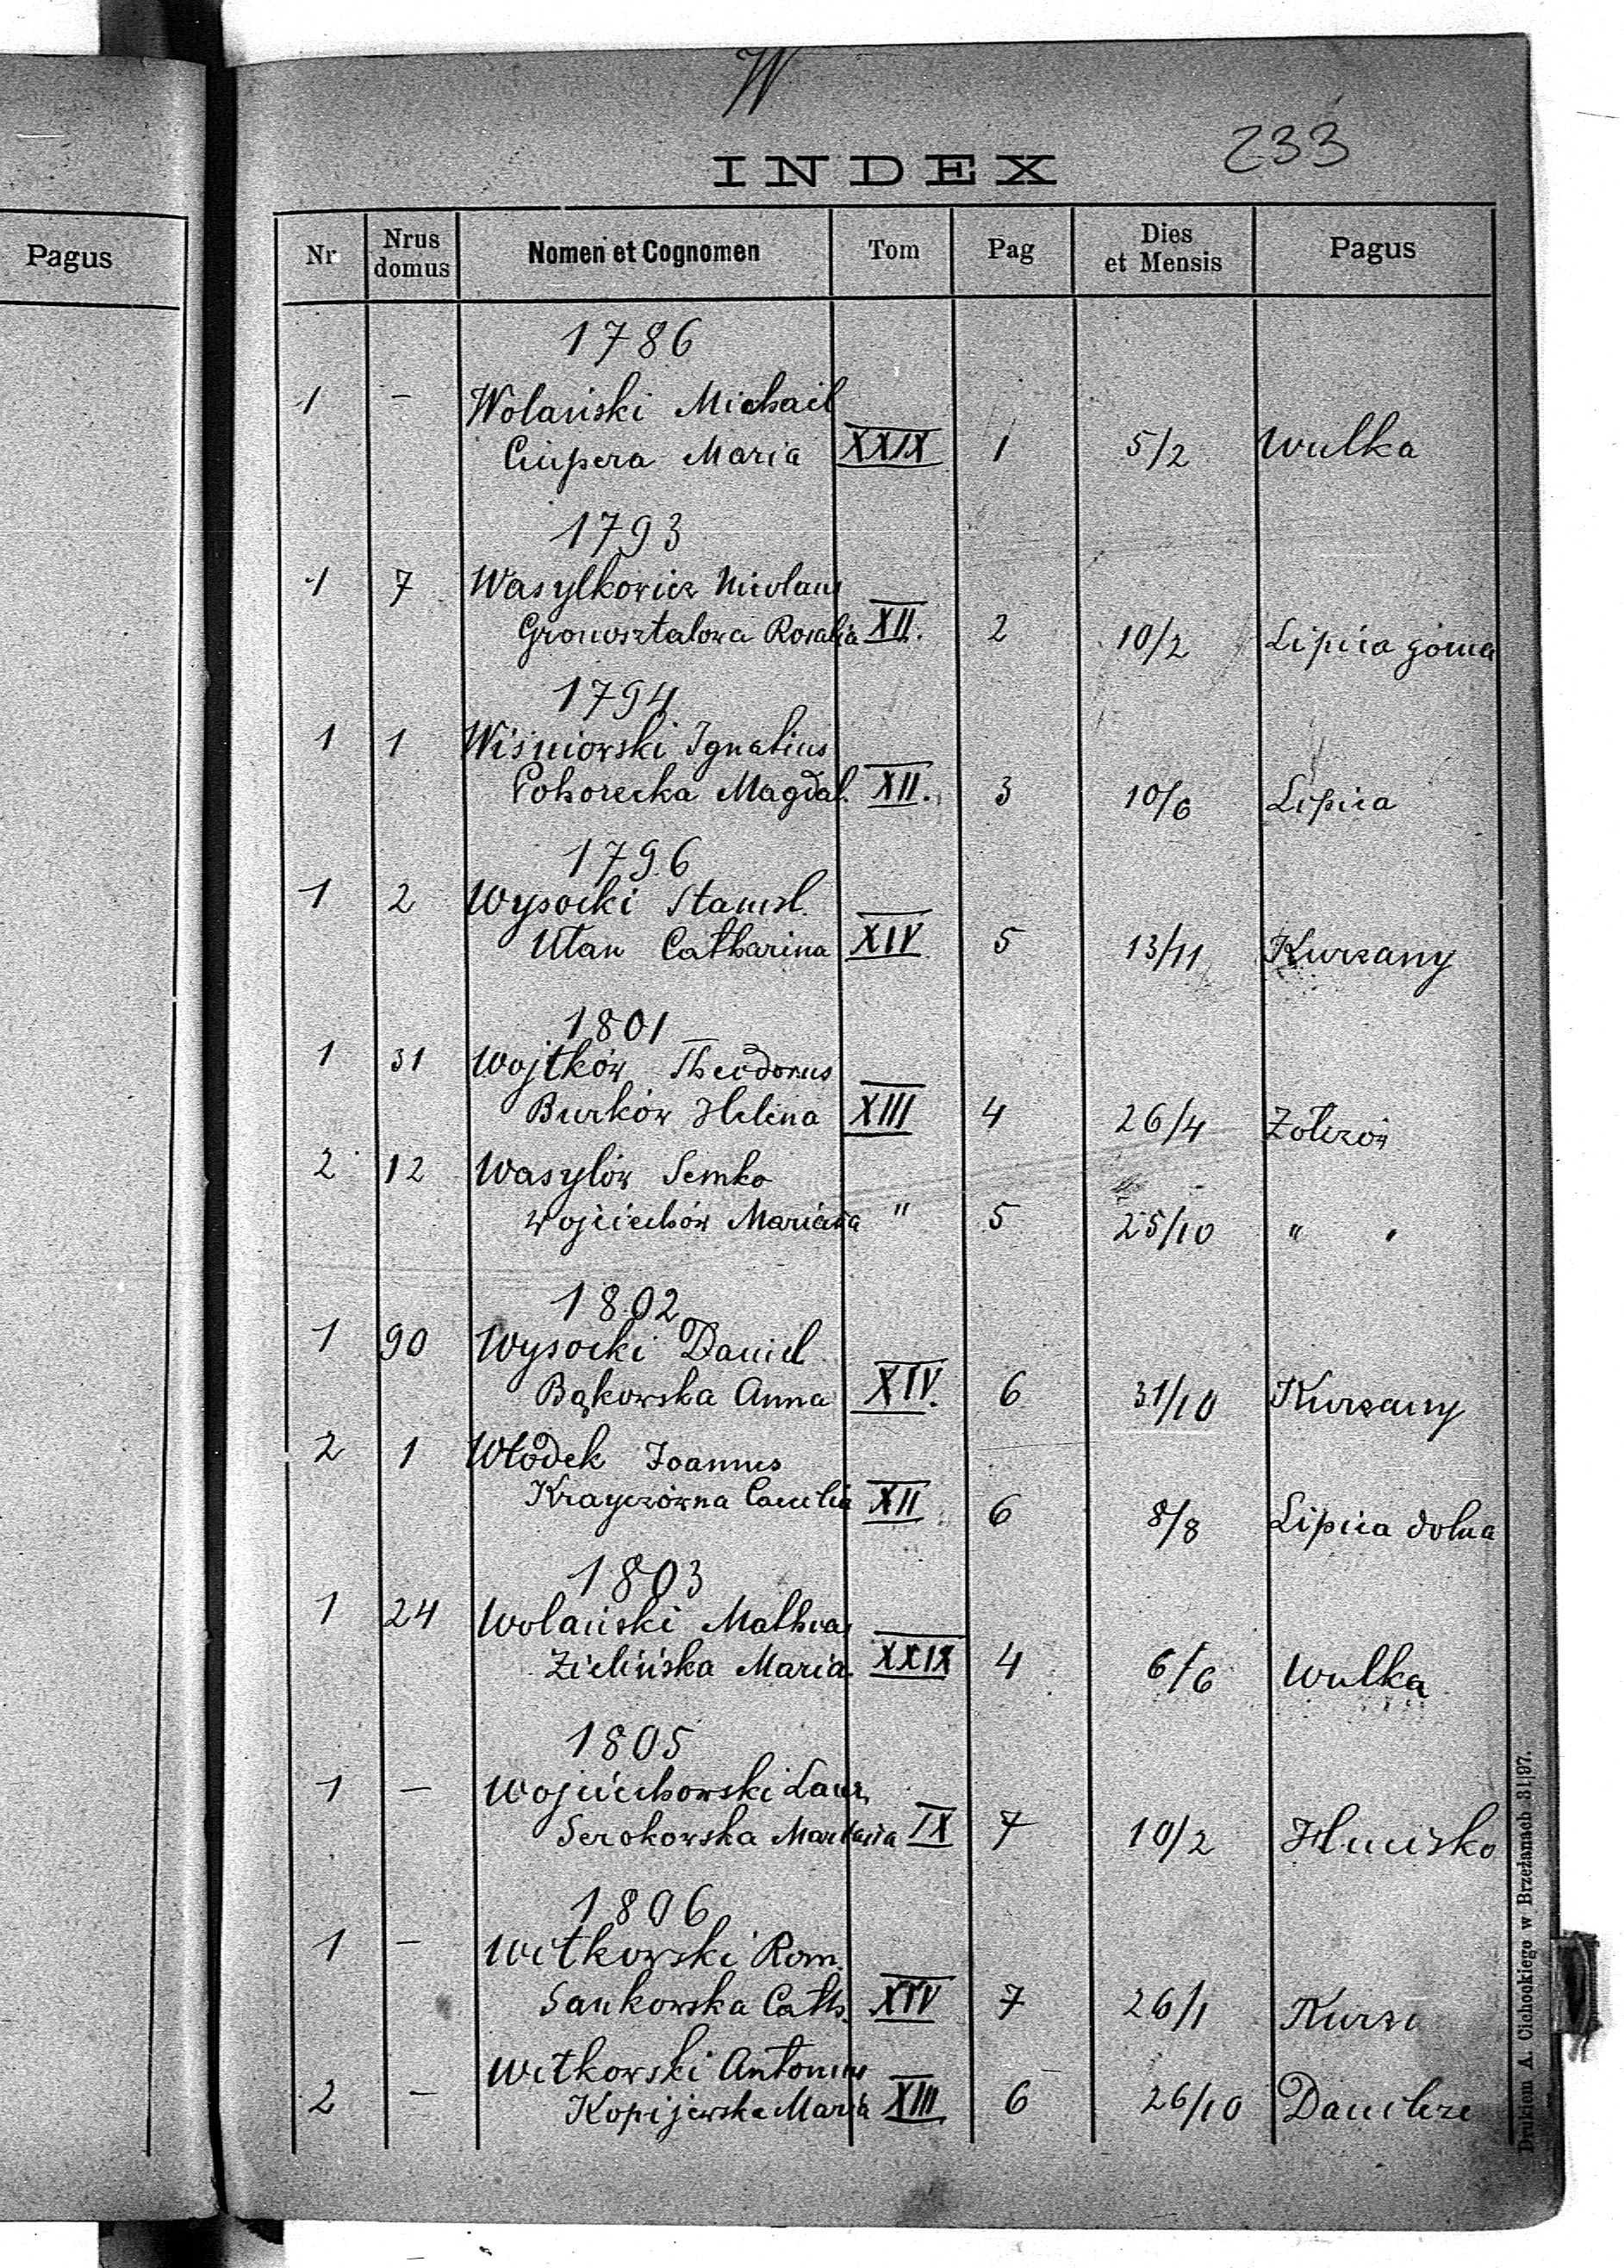 W
233
INDEX
Pagus
Nr Nrus domus Nomen et Cognomen Tom Pag Dies et Mensis Pagus
1786
1 – Wolański Michael
Ciupera Maria XXIX 1 5/2 Wulka
1793
1 7 Wasylkowicz Nicolaus
Gronosztalowa Rosalia XII. 2 10/2 Lipica górna
1794
1 1 Wiśniowski Ignatius
Pohorecka Magdal. XII. 3 10/6 Lipica
1796
1 2 Wysocki Stanisl.
Ulan Catharina XIV 5 13/11 Kurzany
1801
1 31 Wojtków Theodorus
Burków Helena XIII 4 26/4 Żołczów
2 12 Wasylów Semko
Wojciechów Marianna " 5 25/10 " "
1802
1 90 Wysocki Daniel
Bąkowska Anna XIV. 6 31/10 Kurzany
2 1 Włodek Joannes
Krayczówna Caecilia XII 6 8/8 Lipica dolna
1803
1 24 Wolański Mathias
Zielińska Maria. XXIX 4 6/6 Wulka
1805
1 – Wojciechowski Laur.
Serokowska Marianna IX 7 10/2 Hucisko
1806
1 – Witkowski Rom.
Sankowska Cath. XIV 7 26/1 Kurz
Witkowski Antonius
2 – Kopijewska Maria XIII 6 26/10 Danilcze
Drukiem A. Cichockiego w Brzeżanach 31|97.